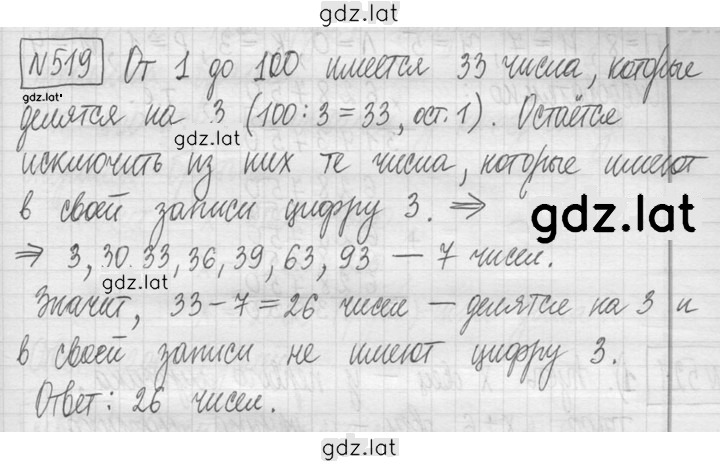 gdz.lat
№519 От 1 до 100 имеется 33 числа, которые
gdz.lat
делятся на 3 (100:3=33, ост.1). Остаётся
gdz.lat
исключить из них те числа, которые имеют
в своей записи цифру 3. ⇒
gdz.lat
⇒ 3, 30. 33, 36, 39, 63, 93 — 7 чисел.
gdz.lat
Значит, 33-7=26 чисел — делятся на 3 и
в своей записи не имеют цифру 3.
Ответ: 26 чисел.
gdz.lat